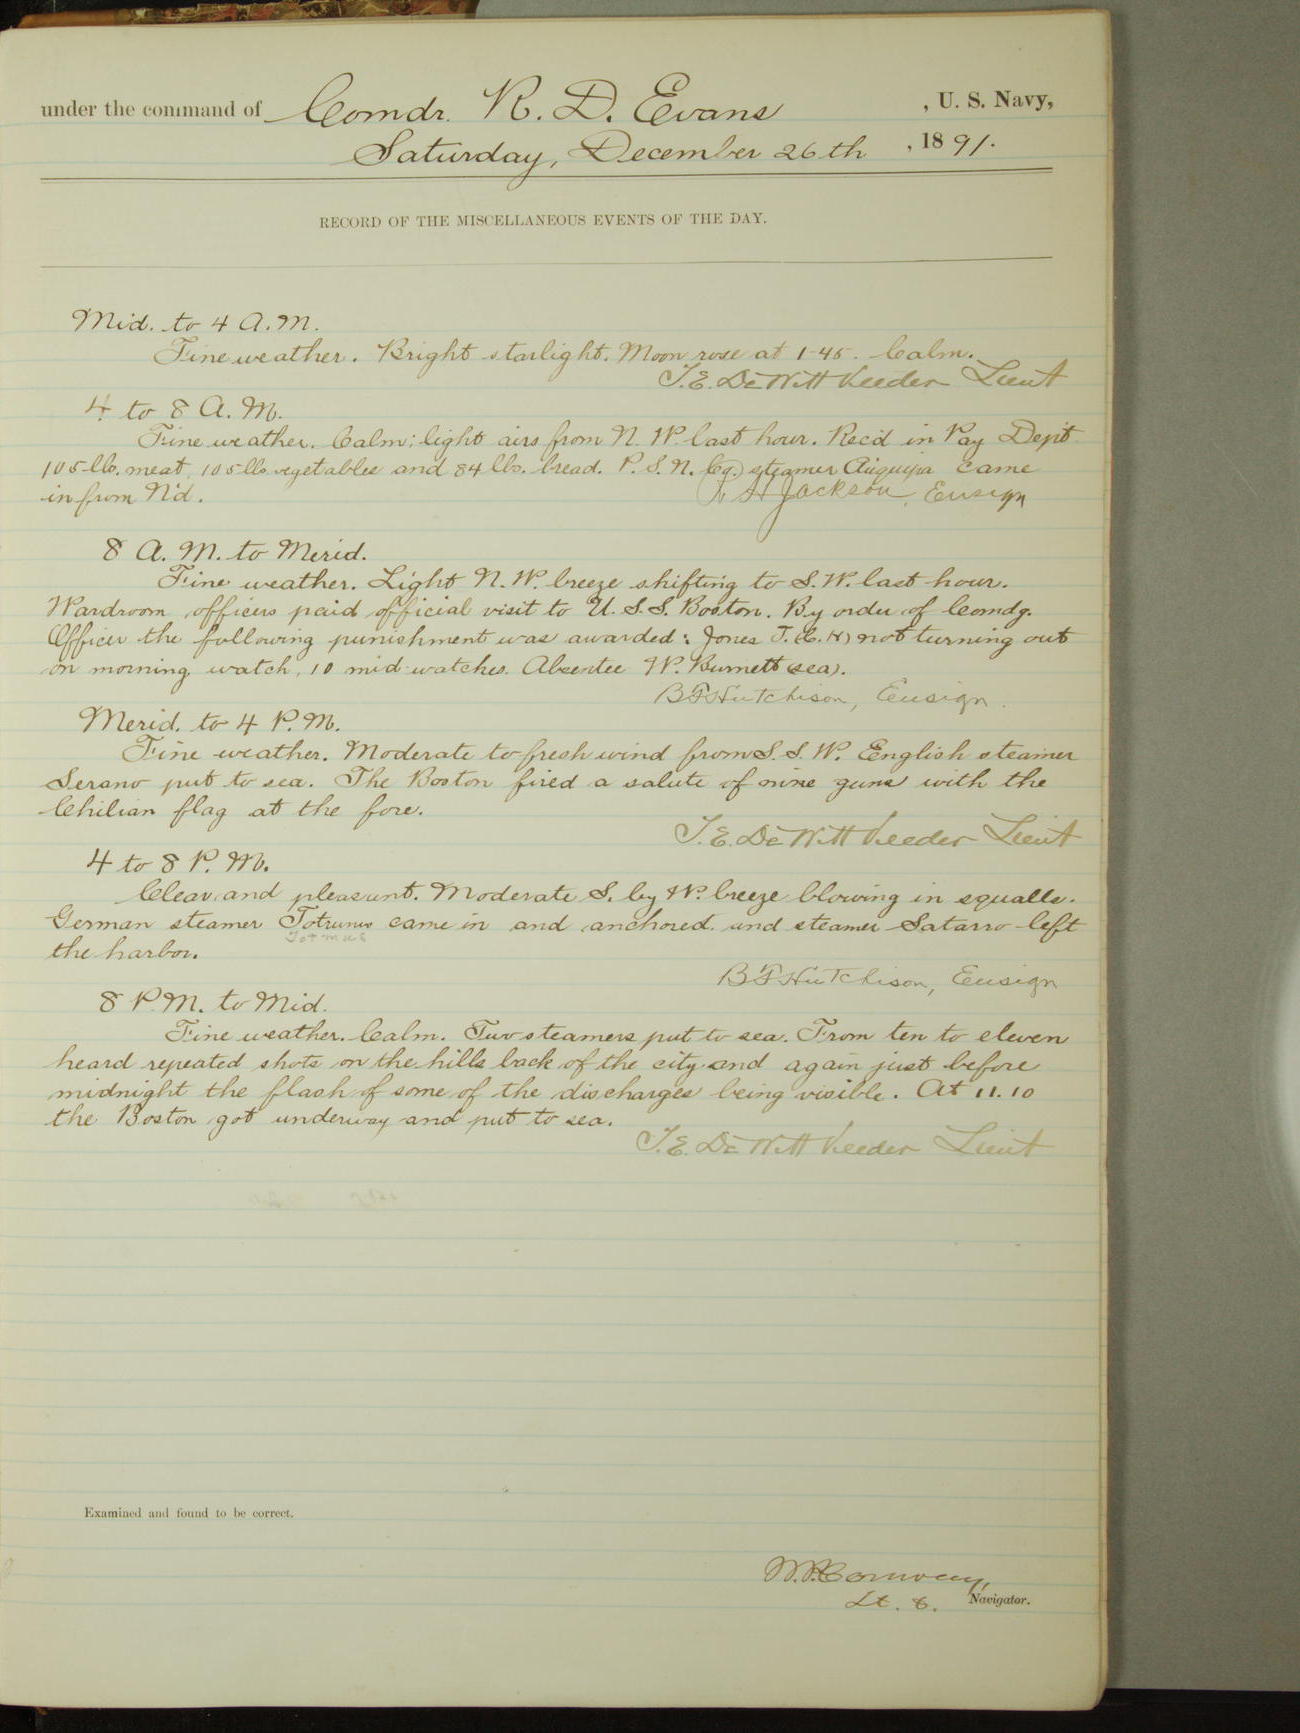 under the command of Comdr. R. D. Evans, U. S. Navy,
Saturday, December 26th, 1891.
RECORD OF THE MISCELLANEOUS EVENTS OF THE DAY.
Mid. to 4 A.M.
Fine weather. Bright starlight. Moon rose at 1-45. Calm.
T.E. DeWitt Veeder Lieut
4 to 8 A.M.
Fine weather. Calm; light airs from N. W. last hour. Rec'd in Pay Dept
105 lbs. meat, 105 lbs. vegetables and 84 lbs. bread. P. S. N. Co. steamer came
in from N'd.
Jackson, Ensign
8 A. M. to Merid.
Fine weather. Light N. W. breeze shifting to S. W. last hour.
Wardroom officers paid official visit to U. S. S. Boston. By order of Comdg.
Officer the following punishment was awarded: Jones T. (C. H) not turning out
on morning watch, 10 mid-watches. Absentee W. Burnett (sea).
B F Hutchison, Ensign.
Merid. to 4 P. M.
Fine weather. Moderate to fresh wind from S. S. W. English steamer
Serano put to sea. The Boston fired a salute of nine guns with the
Chilian flag at the fore.
T.E. DeWitt Veeder Lieut
4 to 8 P. M.
Clear and pleasant. Moderate S. by W. breeze blowing in squalls.
German steamer came in and anchored. and steamer Satarro left
the harbor.
B F Hutchison, Ensign
8 P.M. to Mid.
Fine weather. Calm. Two steamers put to sea. From ten to eleven
heard repeated shots on the hills back of the city and again just before
midnight the flash of some of the discharges being visible. At 11.10
the Boston got underway and put to sea.
T.E. DeWitt Veeder Lieut
Examined and found to be correct.
Conway,
Lt. &. Navigator.